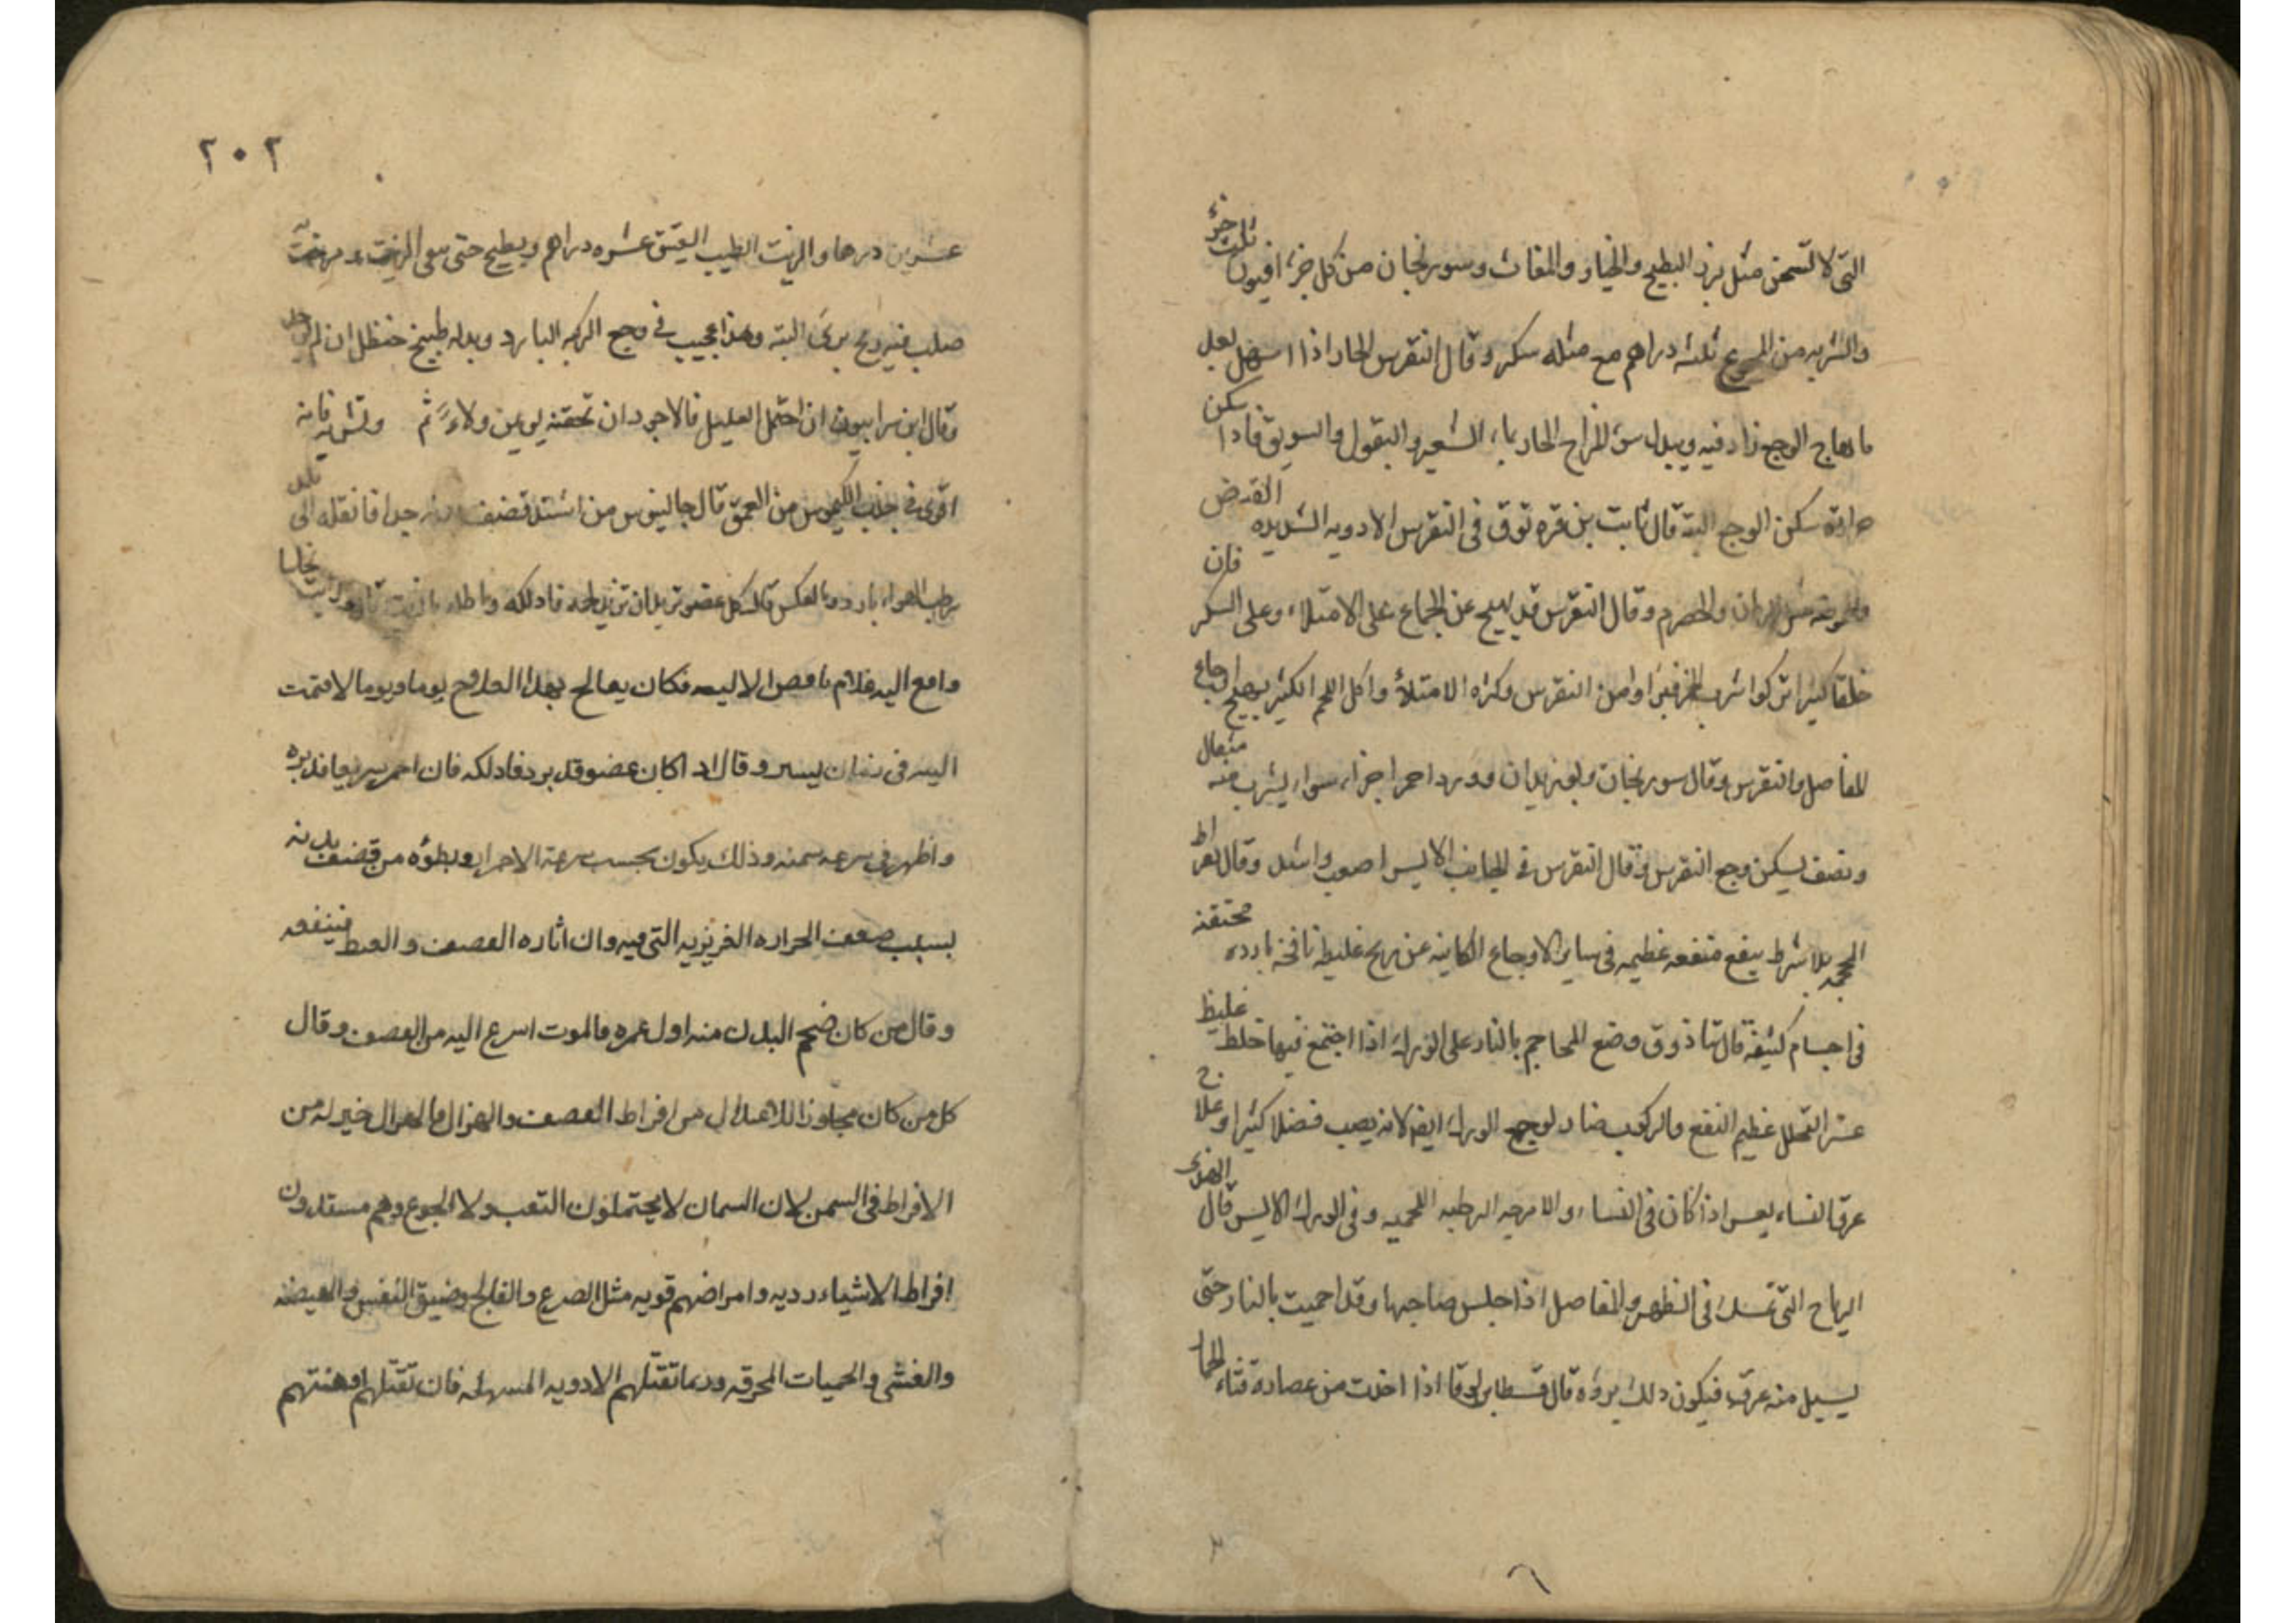 التى لا تسخن مثل بزر البطيخ والخيار والمغاث وسورنجان من كل جزء افيون ثلث جزء
والشربه من الجميع ثلثه دراهم مع مثله سكر وقال النقرس الحار اذا اسهل لعل
ما دهاج الوجع زاد فيه ويبدل سوء المزاج الحار بماء الشعير والبقول والسويق فاذا سكن
حرارته سكن الوجع البته قال ثابت بن قره توق فى النقرس الادويه الشديده القبض
والحصرم وقال النقرس قد يهيج عن الجماع على الامتلاء وعلى السكر فان
خلقا كثيرا تركوا شرب الخمر فبراوا من النقرس وكثره الامتلاء واكل اللحم الكثير يهيج اوجاع
المفاصل والنقرس وقال سورنجان وبوزيدان وورد احمر اجزاء سواء يشرب منه مثقال
ونصف يسكن وجع النقرس وقال النقرس فى الجانب الايسر اصعب واشد وقال بقراط
المحجمه بلا شرط ينفع منفعه عظيمه فى ساير الاوجاع الكاينه عن ريح غليظه نافخه بارده محتقنه
فى اجسام كثيفه قال تياذوق وضع المحاجم بالنار على الورك اذا اجتمع فيها خلط غليظ
عسر التحلل عظيم النفع والركوب ضار لوجع الورك ايضا لانه يصب فضلا كثيرا وعلاج
عرق النساء يعسر اذا كان فى النساء والامزجه الرطبه اللحميه وفى الورك الايسر قال الهندى
الرياح التى تمسك فى الظهر والمفاصل اذا جلس صاحبها وقد احميت بالنار حتى
يسيل منه عرق فيكون ذلك برؤه قال قسطا بن لوقا اذا اخذت من عصارة قثاء الحمار
٢٠٢
عشرين درهما والزيت الطيب العتيق عشره دراهم ويطبخ حتى يبقى الزيت
صلب فيه وجع برئ البته وهذا عجيب فى وجع الركبه البارد وبدله طبيخ حنظل ان لم
وقال ابن سرابيون ان احتمل العليل فالاجود ان تحقنه يومين ولاء ثم وتشربه فانه
اقوى فى جذب الكيموس من العمق قال جالينوس من اشتد قضف بدنه جدا فانقله الى بلد
رطب الهواء بارد وبالعكس قال كل عضو تريد ان تزيد لحمه فادلكه واطله بالزيت
وادفع اليه غلام ناقص الاليه فكان يعالج بهذا العلاج يوما ويوما لا فنمت
اليه فى زمان يسير وقال اذا كان عضو قد برد فادلكه فان احمر سريعا فدبره
واظهر فى سرعه سمنه وذلك يكون بحسب سرعة الاحمرار وبطؤه من قضف بدنه
بسبب ضعف الحراره الغريزيه التى فيه وان اثاره القصف والغيظ فينفعه
وقال من كان ضخم البدن منه اول عمره فالموت اسرع اليه من القصف وقال
كل من كان مجاوزا للاعتدال من افراط القصف والهزال فالهزال خير له من
الافراط فى السمن لان السمان لا يحتملون التعب ولا الجوع وهم مستعدون
افراط الاشياء رديه وامراضهم قويه مثل الصرع والفالج وضيق النفس والهيضه
والغشى والحميات المحرقه وربما تقتلهم الادويه المسهله فان تقتلهم اوهنتهم